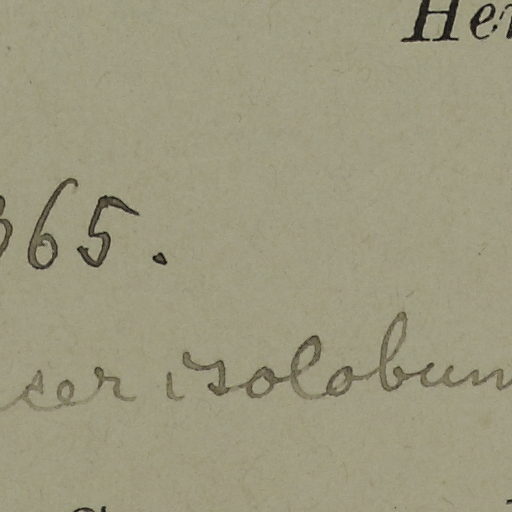 Her
365.
ser isolobum